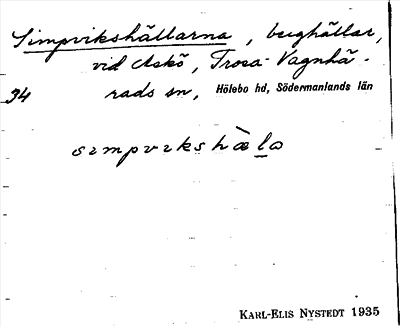 Simpvikshällarna, berghällar,
vid Askö, Trosa-Vagnhä-
34 rads sn, Hölebo hd, Södermanlands län
sımpvıkshæ̀lɑ
KARL-ELIS NYSTEDT 1935